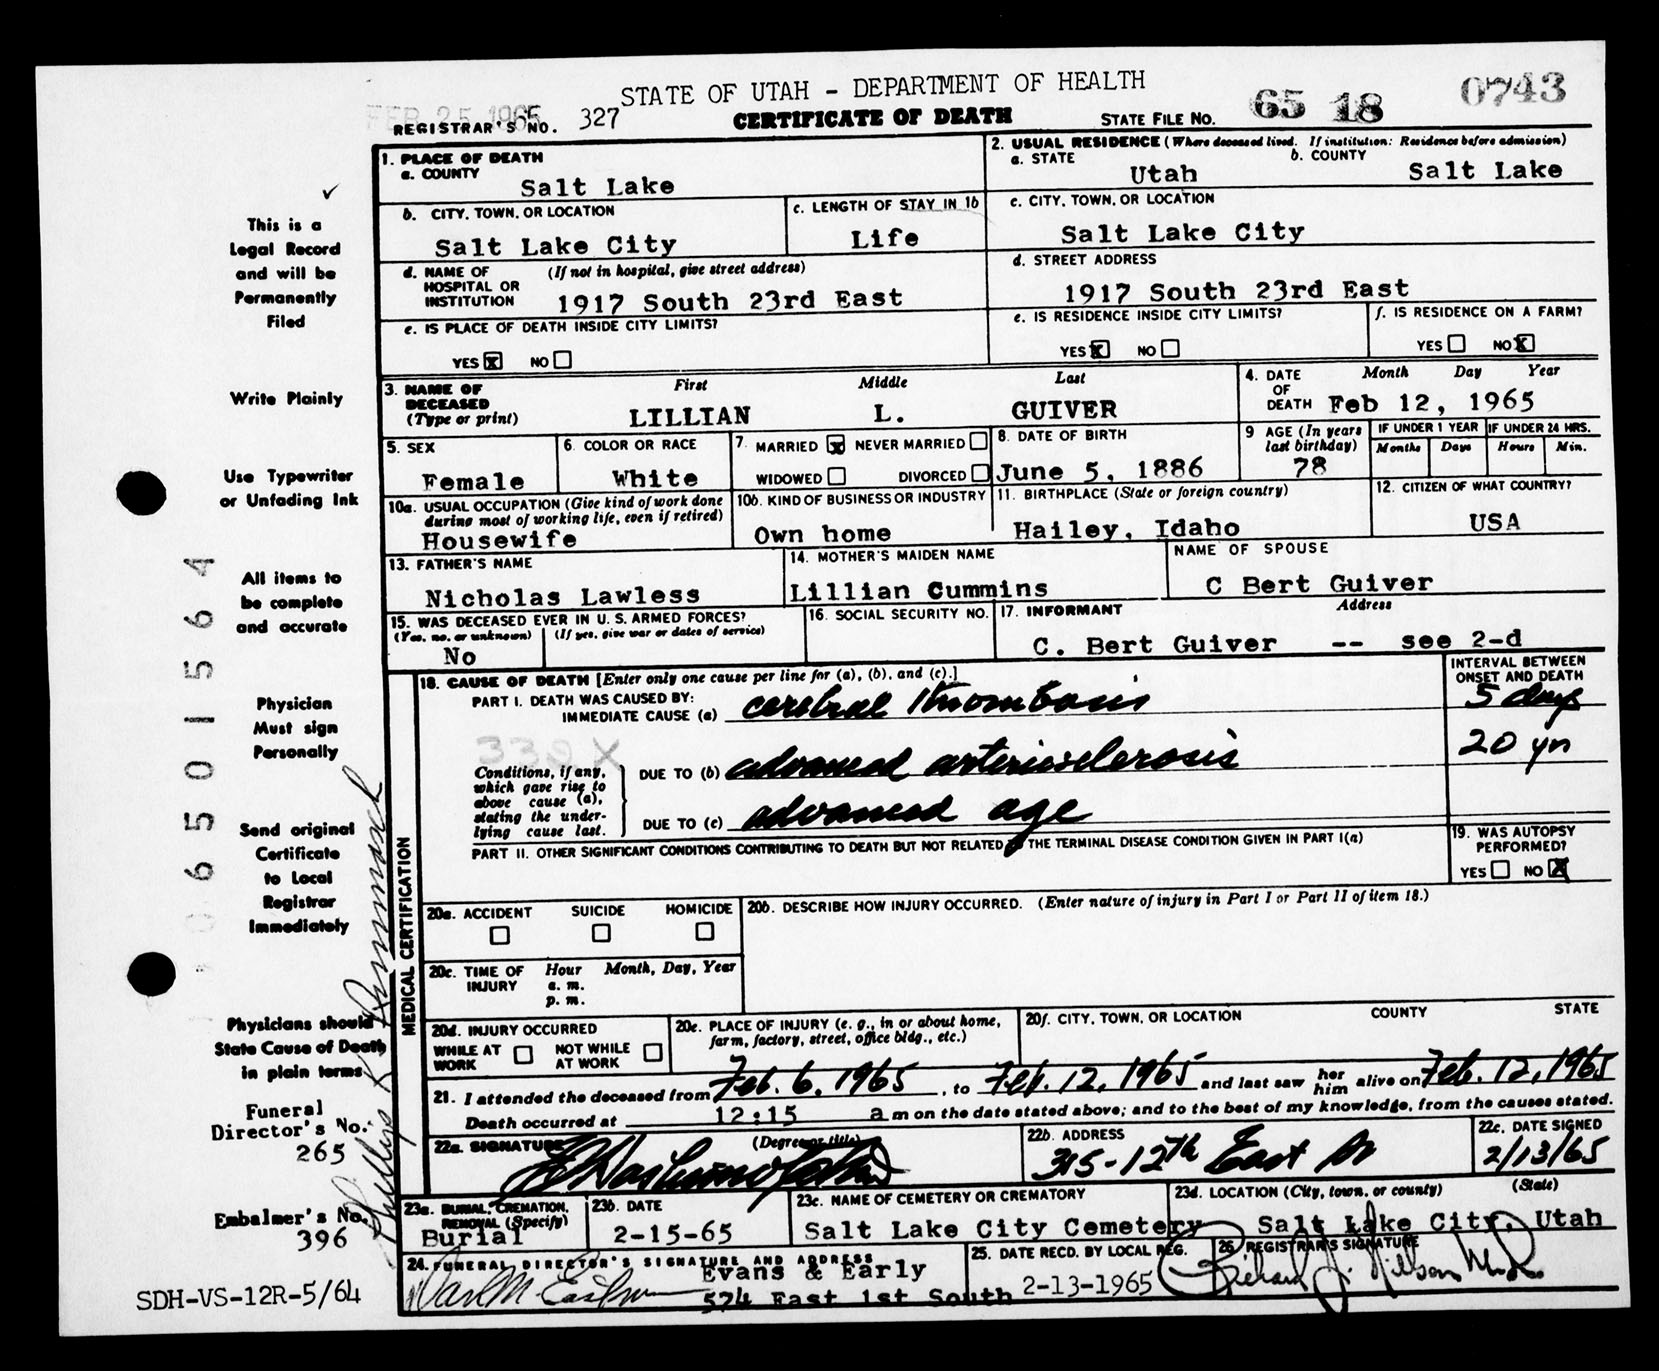 STATE OF UTAH - DEPARTMENT OF HEALTH
FEB 25 1965
REGISTRAR'S NO. 327
CERTIFICATE OF DEATH
STATE FILE NO. 65 18 0743
1. PLACE OF DEATH
a. COUNTY
Salt Lake
2. USUAL RESIDENCE (Where deceased lived. If institution: Residence before admission)
a. STATE
Utah
b. COUNTY
Salt Lake
b. CITY, TOWN, OR LOCATION
Salt Lake City
c. LENGTH OF STAY IN 1b
Life
c. CITY, TOWN, OR LOCATION
Salt Lake City
d. NAME OF HOSPITAL OR INSTITUTION
(If not in hospital, give street address)
1917 South 23rd East
d. STREET ADDRESS
1917 South 23rd East
e. IS PLACE OF DEATH INSIDE CITY LIMITS?
YES X NO
e. IS RESIDENCE INSIDE CITY LIMITS?
YES X NO
f. IS RESIDENCE ON A FARM?
YES NO X
3. NAME OF DECEASED
(Type or print)
First Middle Last
LILLIAN L. GUIVER
4. DATE OF DEATH
Month Day Year
Feb 12, 1965
5. SEX
Female
6. COLOR OR RACE
White
7. MARRIED X NEVER MARRIED
WIDOWED DIVORCED
8. DATE OF BIRTH
June 5, 1886
9 AGE (In years last birthday)
78
IF UNDER 1 YEAR
Months Days
IF UNDER 24 HRS.
Hours Min.
10a. USUAL OCCUPATION (Give kind of work done during most of working life, even if retired)
Housewife
10b. KIND OF BUSINESS OR INDUSTRY
Own home
11. BIRTHPLACE (State or foreign country)
Hailey, Idaho
12. CITIZEN OF WHAT COUNTRY?
USA
13. FATHER'S NAME
Nicholas Lawless
14. MOTHER'S MAIDEN NAME
Lillian Cummins
NAME OF SPOUSE
C Bert Guiver
15. WAS DECEASED EVER IN U. S. ARMED FORCES?
(Yes, no, or unknown) (If yes, give war or dates of service)
No
16. SOCIAL SECURITY NO.
17. INFORMANT Address
C. Bert Guiver -- see 2-d
MEDICAL CERTIFICATION
18. CAUSE OF DEATH [Enter only one cause per line for (a), (b), and (c).]
INTERVAL BETWEEN ONSET AND DEATH
PART I. DEATH WAS CAUSED BY:
IMMEDIATE CAUSE (a) cerebral thrombosis
5 days
332 X
Conditions, if any, which gave rise to above cause (a), stating the underlying cause last.
DUE TO (b) advanced arteriosclerosis
20 yr
DUE TO (c) advanced age
PART II. OTHER SIGNIFICANT CONDITIONS CONTRIBUTING TO DEATH BUT NOT RELATED TO THE TERMINAL DISEASE CONDITION GIVEN IN PART I(a)
19. WAS AUTOPSY PERFORMED?
YES NO X
20a. ACCIDENT SUICIDE HOMICIDE
20b. DESCRIBE HOW INJURY OCCURRED. (Enter nature of injury in Part I or Part II of item 18.)
20c. TIME OF INJURY
Hour Month, Day, Year
a. m.
p. m.
20d. INJURY OCCURRED
WHILE AT WORK NOT WHILE AT WORK
20e. PLACE OF INJURY (e. g., in or about home, farm, factory, street, office bldg., etc.)
20f. CITY, TOWN, OR LOCATION COUNTY STATE
21. I attended the deceased from Feb. 6, 1965, to Feb. 12, 1965 and last saw her him alive on Feb. 12, 1965
Death occurred at 12:15 a m on the date stated above; and to the best of my knowledge, from the causes stated.
22a. SIGNATURE (Degree or title)
22b. ADDRESS
315-12th East
22c. DATE SIGNED
2/13/65
23a. BURIAL, CREMATION, REMOVAL (Specify)
Burial
23b. DATE
2-15-65
23c. NAME OF CEMETERY OR CREMATORY
Salt Lake City Cemetery
23d. LOCATION (City, town, or county) (State)
Salt Lake City, Utah
24. FUNERAL DIRECTOR'S SIGNATURE AND ADDRESS
Evans & Early
574 East 1st South
25. DATE RECD. BY LOCAL REG.
2-13-1965
26 REGISTRAR'S SIGNATURE
This is a
Legal Record
and will be
Permanently
Filed
Write Plainly
Use Typewriter
or Unfading Ink
All items to
be complete
and accurate
Physician
Must sign
Personally
Send original
Certificate
to Local
Registrar
Immediately
Physicians should
State Cause of Death
in plain terms
Funeral
Director's No.
265
Embalmer's No.
396
SDH-VS-12R-5/64
065015 64